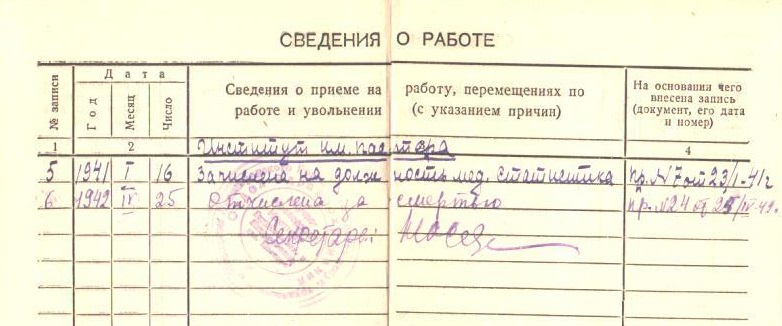 СВЕДЕНИЯ О РАБОТЕ
№ записи
Дата
Год
Месяц
Число
Сведения о приеме на работу, перемещениях по
работе и увольнении (с указанием причин)
На основании чего
внесена запись
(документ, его дата
и номер)
1 2 3 4
Институт им. Пастера
5 1941 I 16 Зачислена на должность мед. статистика Пр. № 7 от 23/I-41г
6 1942 IV 25 Отчислена за смертью Пр. № 24 от 25/IV-42г.
Секретарь: